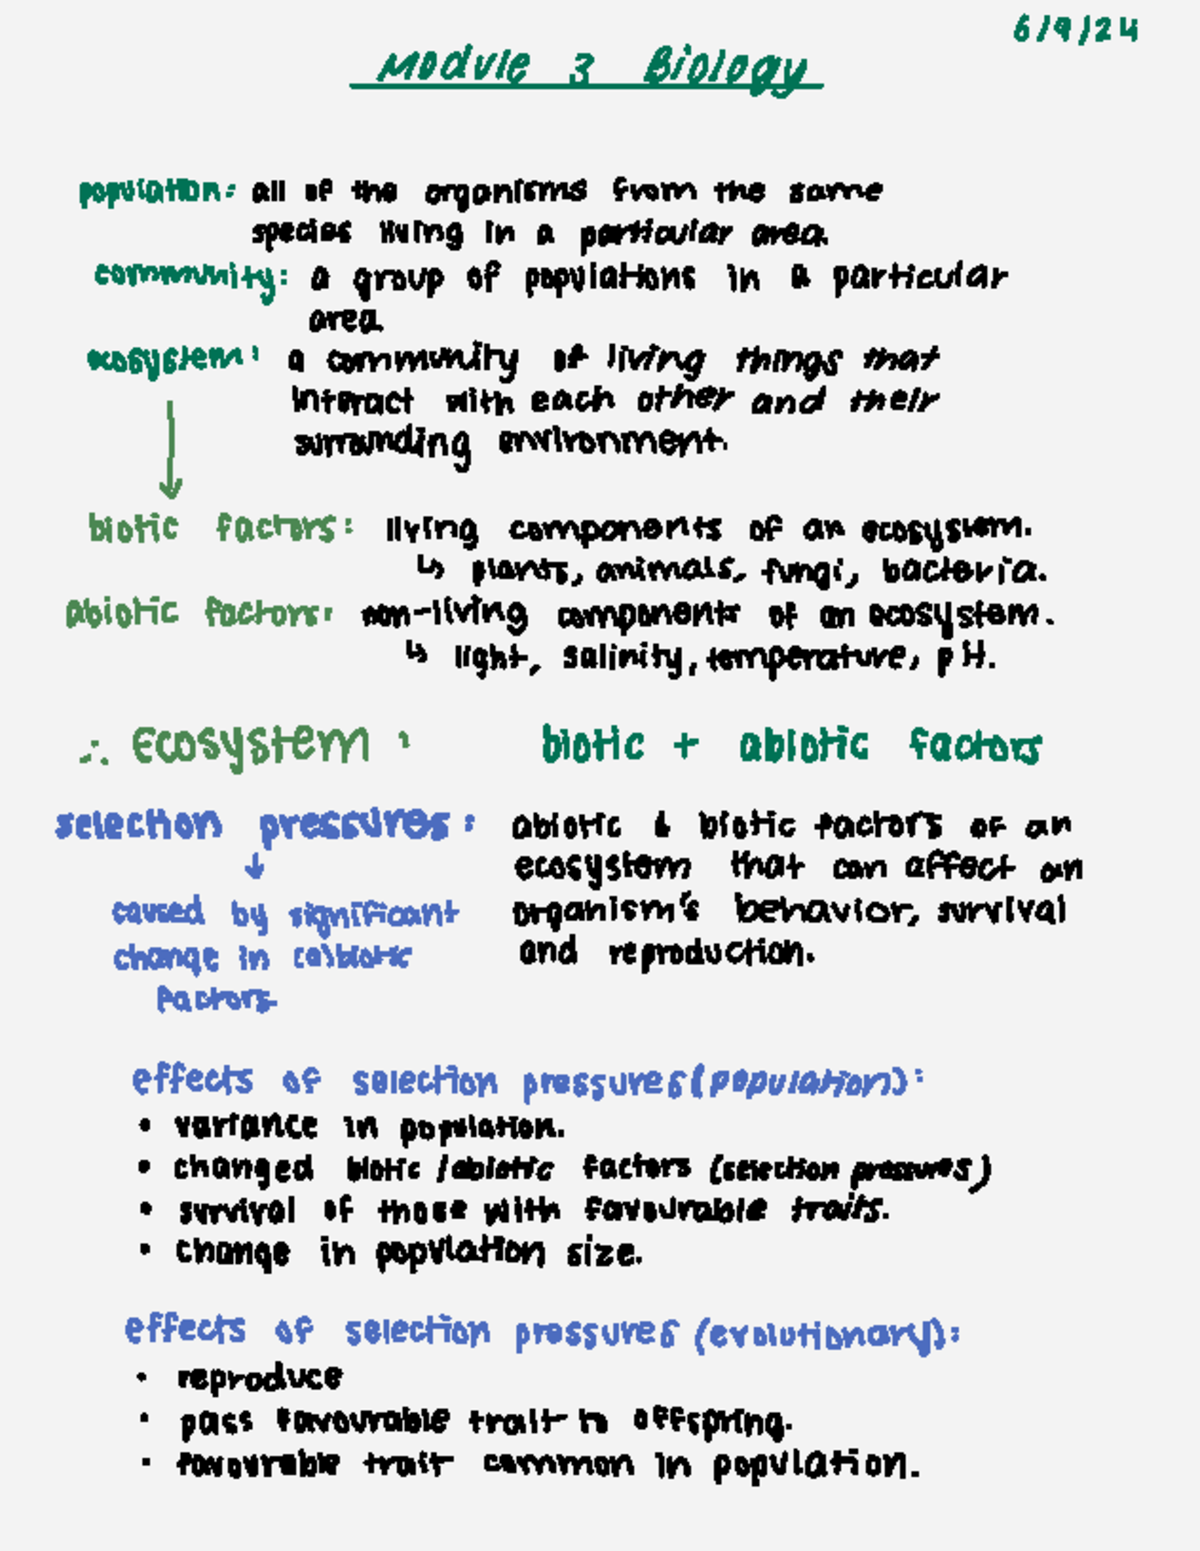 6/9/24
Module 3 Biology
population: all of the organisms from the same
species living in a particular area.
community: a group of populations in a particular
area.
ecosystem: a community of living things that
interact with each other and their
surrounding environment.
↓
biotic factors: living components of an ecosystem.
↳ plants, animals, fungi, bacteria.
abiotic factors: non-living components of an ecosystem.
↳ light, salinity, temperature, pH.
∴ Ecosystem : biotic + abiotic factors
selection pressures: abiotic & biotic factors of an
ecosystem that can affect an
organism's behavior, survival
and reproduction.
↓
caused by significant
change in (a)biotic
factors.
effects of selection pressures (population):
• variance in population.
• changed biotic /abiotic factors (selection pressures)
• survival of those with favourable traits.
• change in population size.
effects of selection pressures (evolutionary):
• reproduce
• pass favourable trait to offspring.
• favourable trait common in population.